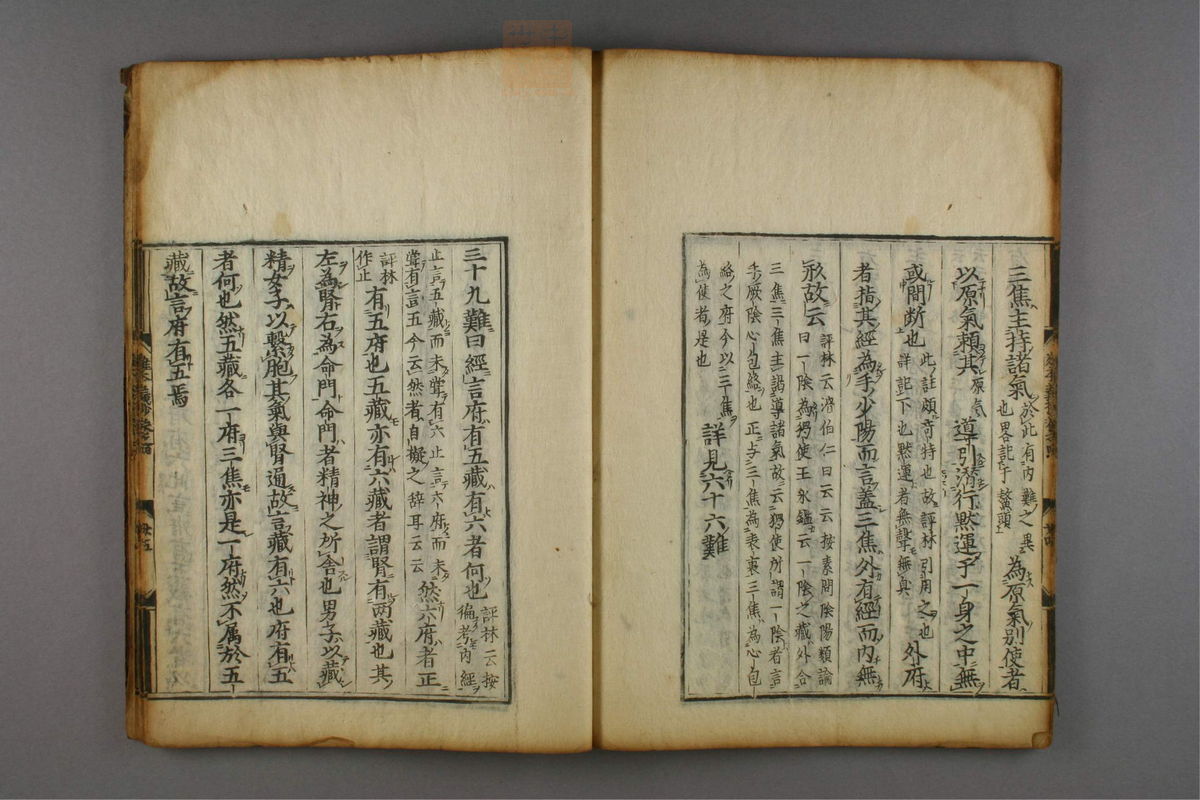 三焦主持諸氣於此有内難之異也畧記于鼇頭為原氣別使者
以原氣頼其原氣導引潜行默運于一身之中無
或間断也此註頗竒特也故評林引用之也詳記下也默運者無聲無臭外府
者指其經為手少陽而言蓋三焦外有經而内無
形故云評林云滑伯仁曰云云按素問陰陽類論曰一陰為獨使王氷鑑云一陰之藏外合
三焦三焦主謁導諸氣故云獨使所謂一陰者言
手厥陰心包絡也正与三焦為表裏三焦為心包
絡之府今以三焦
為使者是也詳見六十六難
三十九難曰經言府有五藏有六者何也評林云按徧考内經
止言五藏而未甞有六止言六府而未
甞有言五今云然者自擬之辞耳云云然六府者正
評林作止有五府也五藏亦有六藏者謂腎有两藏也其
左為腎右為命門命門者精神之所舎也男子以藏
精女子以繋胞其氣與腎通故言藏有六也府有五
者何也然五藏各一府三焦亦是一府然不属於五
藏故言府有五焉